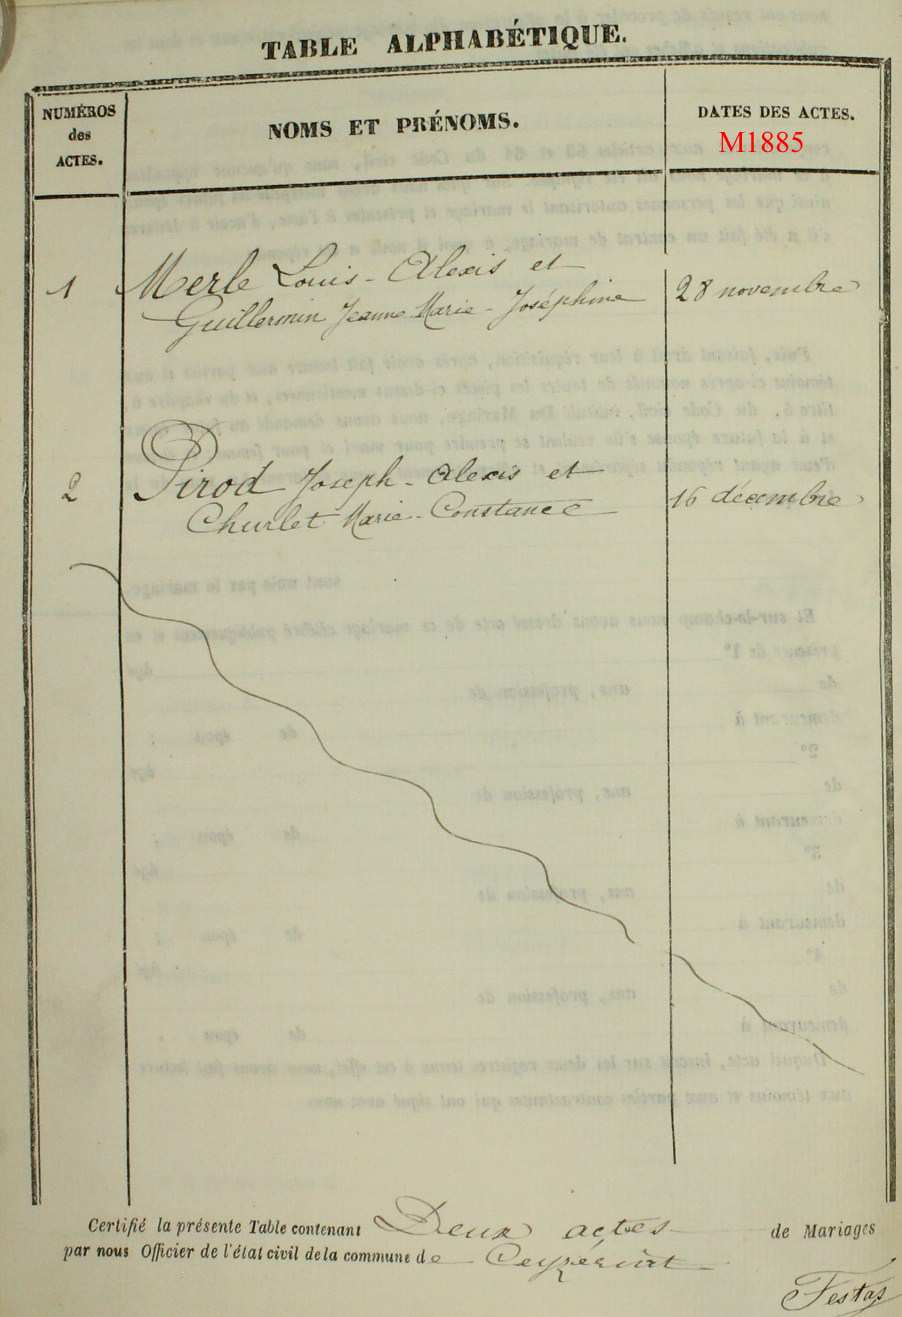 TABLE ALPHABÉTIQUE.
NUMÉROS
des
ACTES.
NOMS ET PRÉNOMS.
DATES DES ACTES.
M1885
1 Merle Louis-Alexis et 28 novembre
Guillermin Jeanne-Marie-Joséphine
2 Pirod Joseph-Alexis et 16 décembre
Churlet Marie-Constance
Certifié la présente Table contenant Deux actes de Mariages
par nous Officier de l'état civil de la commune de Ceyzériat